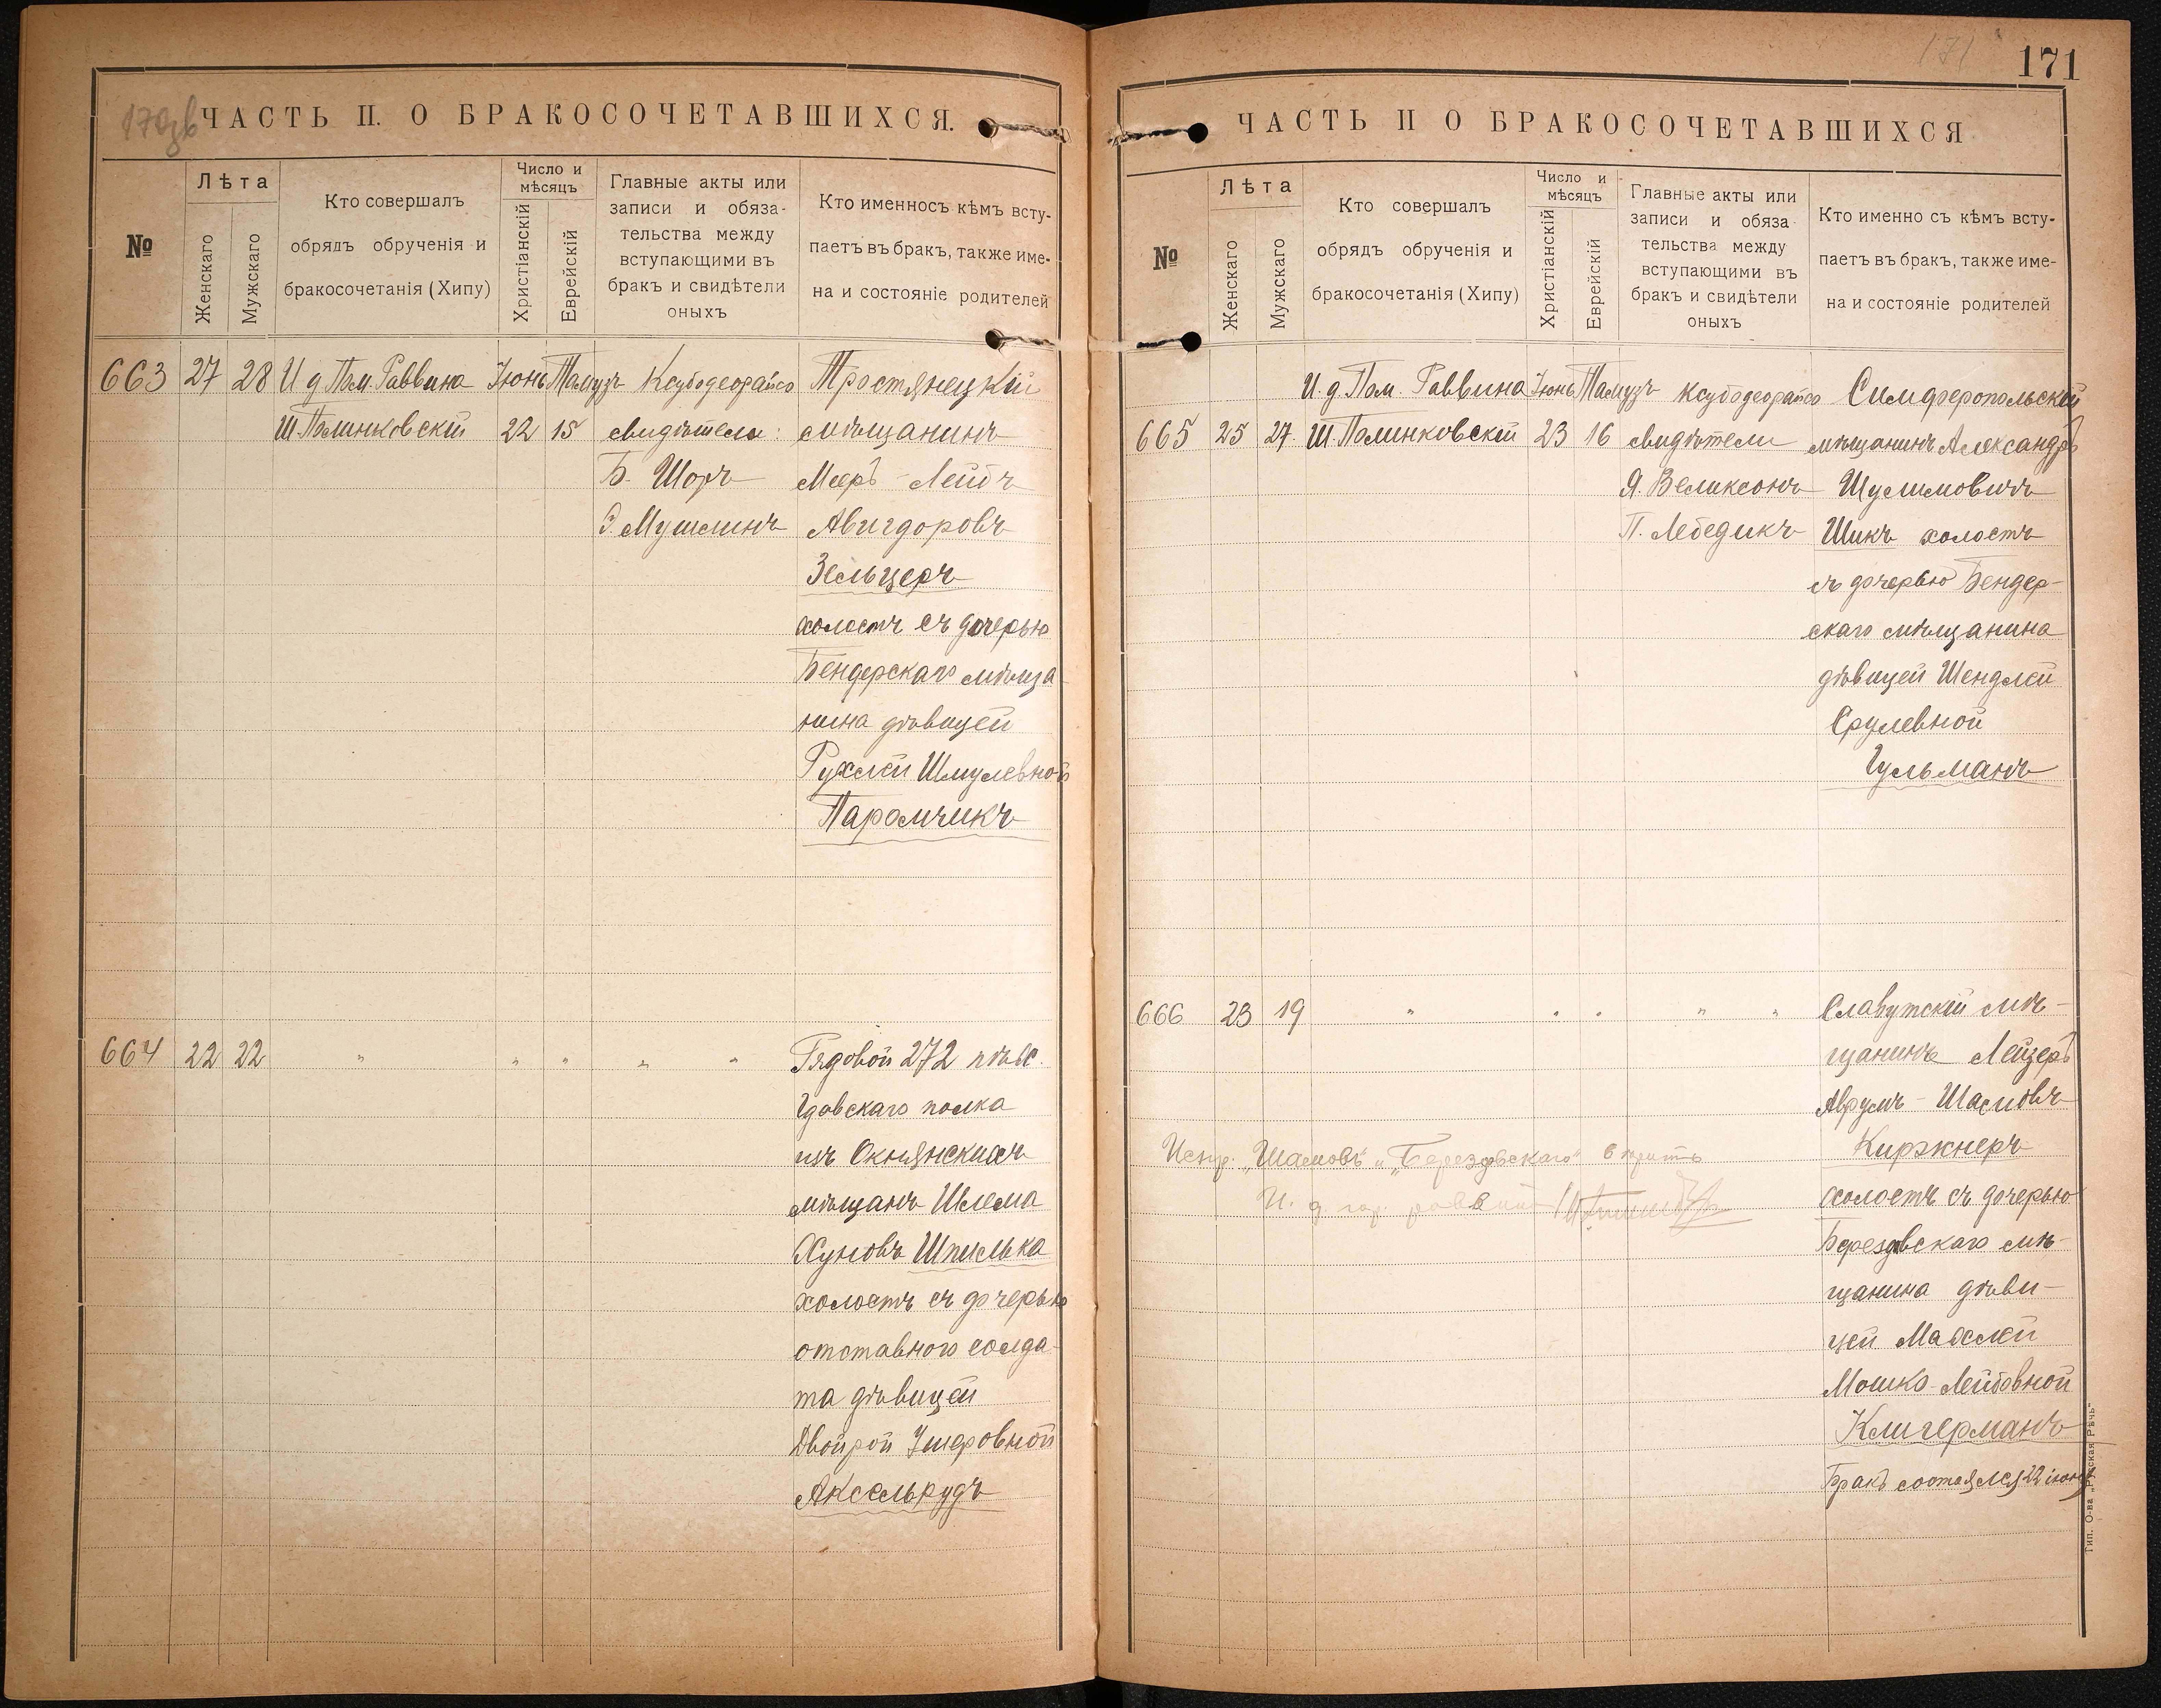 170зв
ЧАСТЬ II. О БРАКОСОЧЕТАВШИХСЯ.
№
Лѣта
Женскаго
Мужскаго
Кто совершалъ
обрядъ обрученія и
бракосочетанія (Хипу)
Число и
мѣсяцъ
Христіанскій
Еврейскій
Главные акты или
записи и обяза-
тельства между
вступающими въ
бракъ и свидѣтели
оныхъ
Кто именносъ кѣмъ всту-
паетъ въ бракъ, также име-
на и состояніе родителей
663 27 28 И д Пом. Раввина Іюнь Тамузъ Ксубодеорайсо Тростянецкій
Ш. Полинковскій 22 15 свидѣтели: мѣщанинъ
Б. Шоръ Мееръ-Лейбъ
Э. Мушлинъ Авигдоровъ
Зельцеръ
холостъ съ дочерью
Бендерскаго мѣща
нина дѣвицей
Рухлей Шмулевной
Паромчикъ
664 22 22 " " " " " Рядовой 272 пѣх.
Гдовскаго полка
изъ Окнянскихъ
мѣщанъ Шлема
Хуновъ Шпилька
холостъ съ дочерью
отставного солда-
та дѣвицей
Двойрой Ушеровной
Аксельрудъ
171
171
ЧАСТЬ II О БРАКОСОЧЕТАВШИХСЯ
№
Лѣта
Женскаго
Мужскаго
Кто совершалъ
обрядъ обрученія и
бракосочетанія (Хипу)
Число и
мѣсяцъ
Христіанскій
Еврейскій
Главные акты или
записи и обяза
тельства между
вступающими въ
бракъ и свидѣтели
оныхъ
Кто именно съ кѣмъ всту-
паетъ въ бракъ, также име-
на и состояніе родителей
И. д. Пом. Раввина Іюнь Тамузъ Ксубодеорайсо Симферопольскій
665 25 27. Ш. Полинковскій 23 16 свидѣтели мѣщанинъ Александръ
Я. Великсонъ Шулимовичъ
П. Лебедикъ Шикъ холостъ
съ дочерью Бендер-
скаго мѣщанина
дѣвицей Шендлей
Срулевной
Гульманъ
666 23 19 " " " " " Славутскій мѣ-
щанинъ Лейзеръ
Аврумъ-Шасмовъ
Киржнеръ
холостъ съ дочерью
Берездвскаго мѣ-
щанина дѣви-
цей Махлей
Мошко-Лейбовной
Клигерманъ
Бракъ состоялся 22 іюня
Испр. „Шасмовъ" и „Берездвскаго" вѣрить
И. д гор. раввина
Тип. О-ва „Русская Рѣчь"